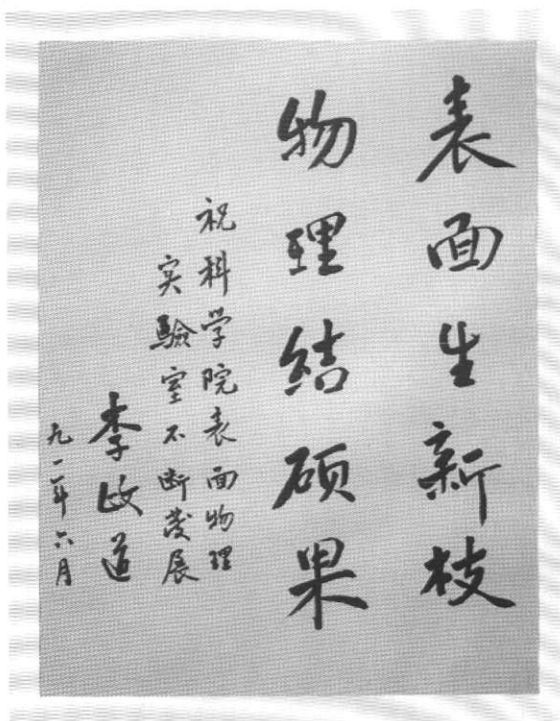 表面生新枝
物理结硕果
祝科学院表面物理
实驗室不断發展
李政道
九一年六月